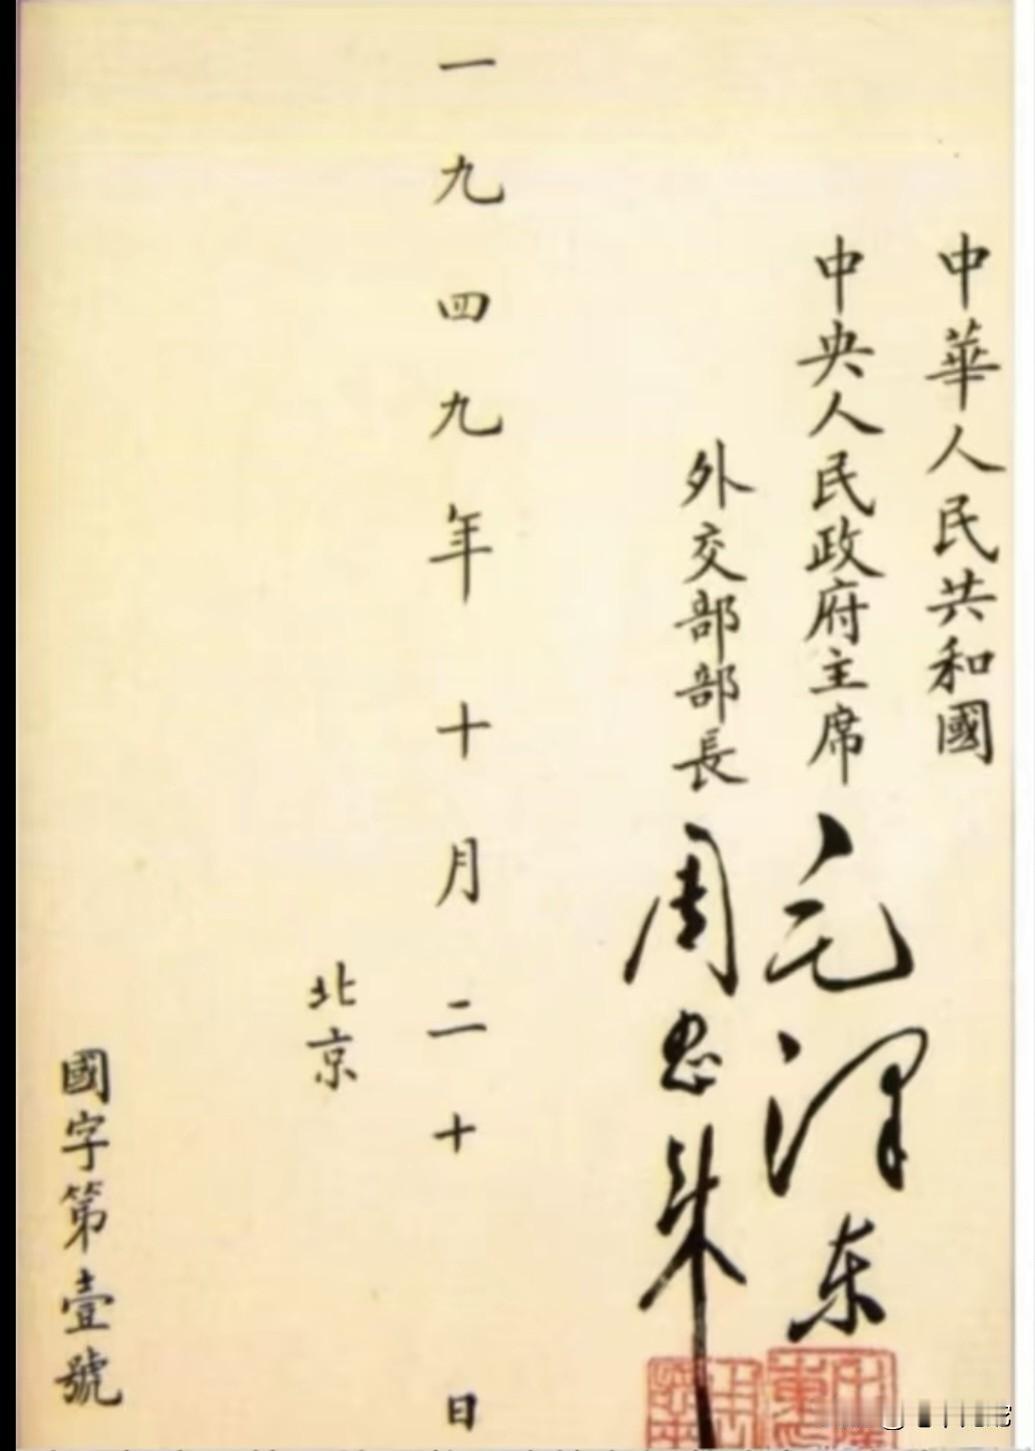 中華人民共和國
中央人民政府主席 毛澤东
外交部部長 周恩来
一九四九年十月二十日
北京
國字第壹號